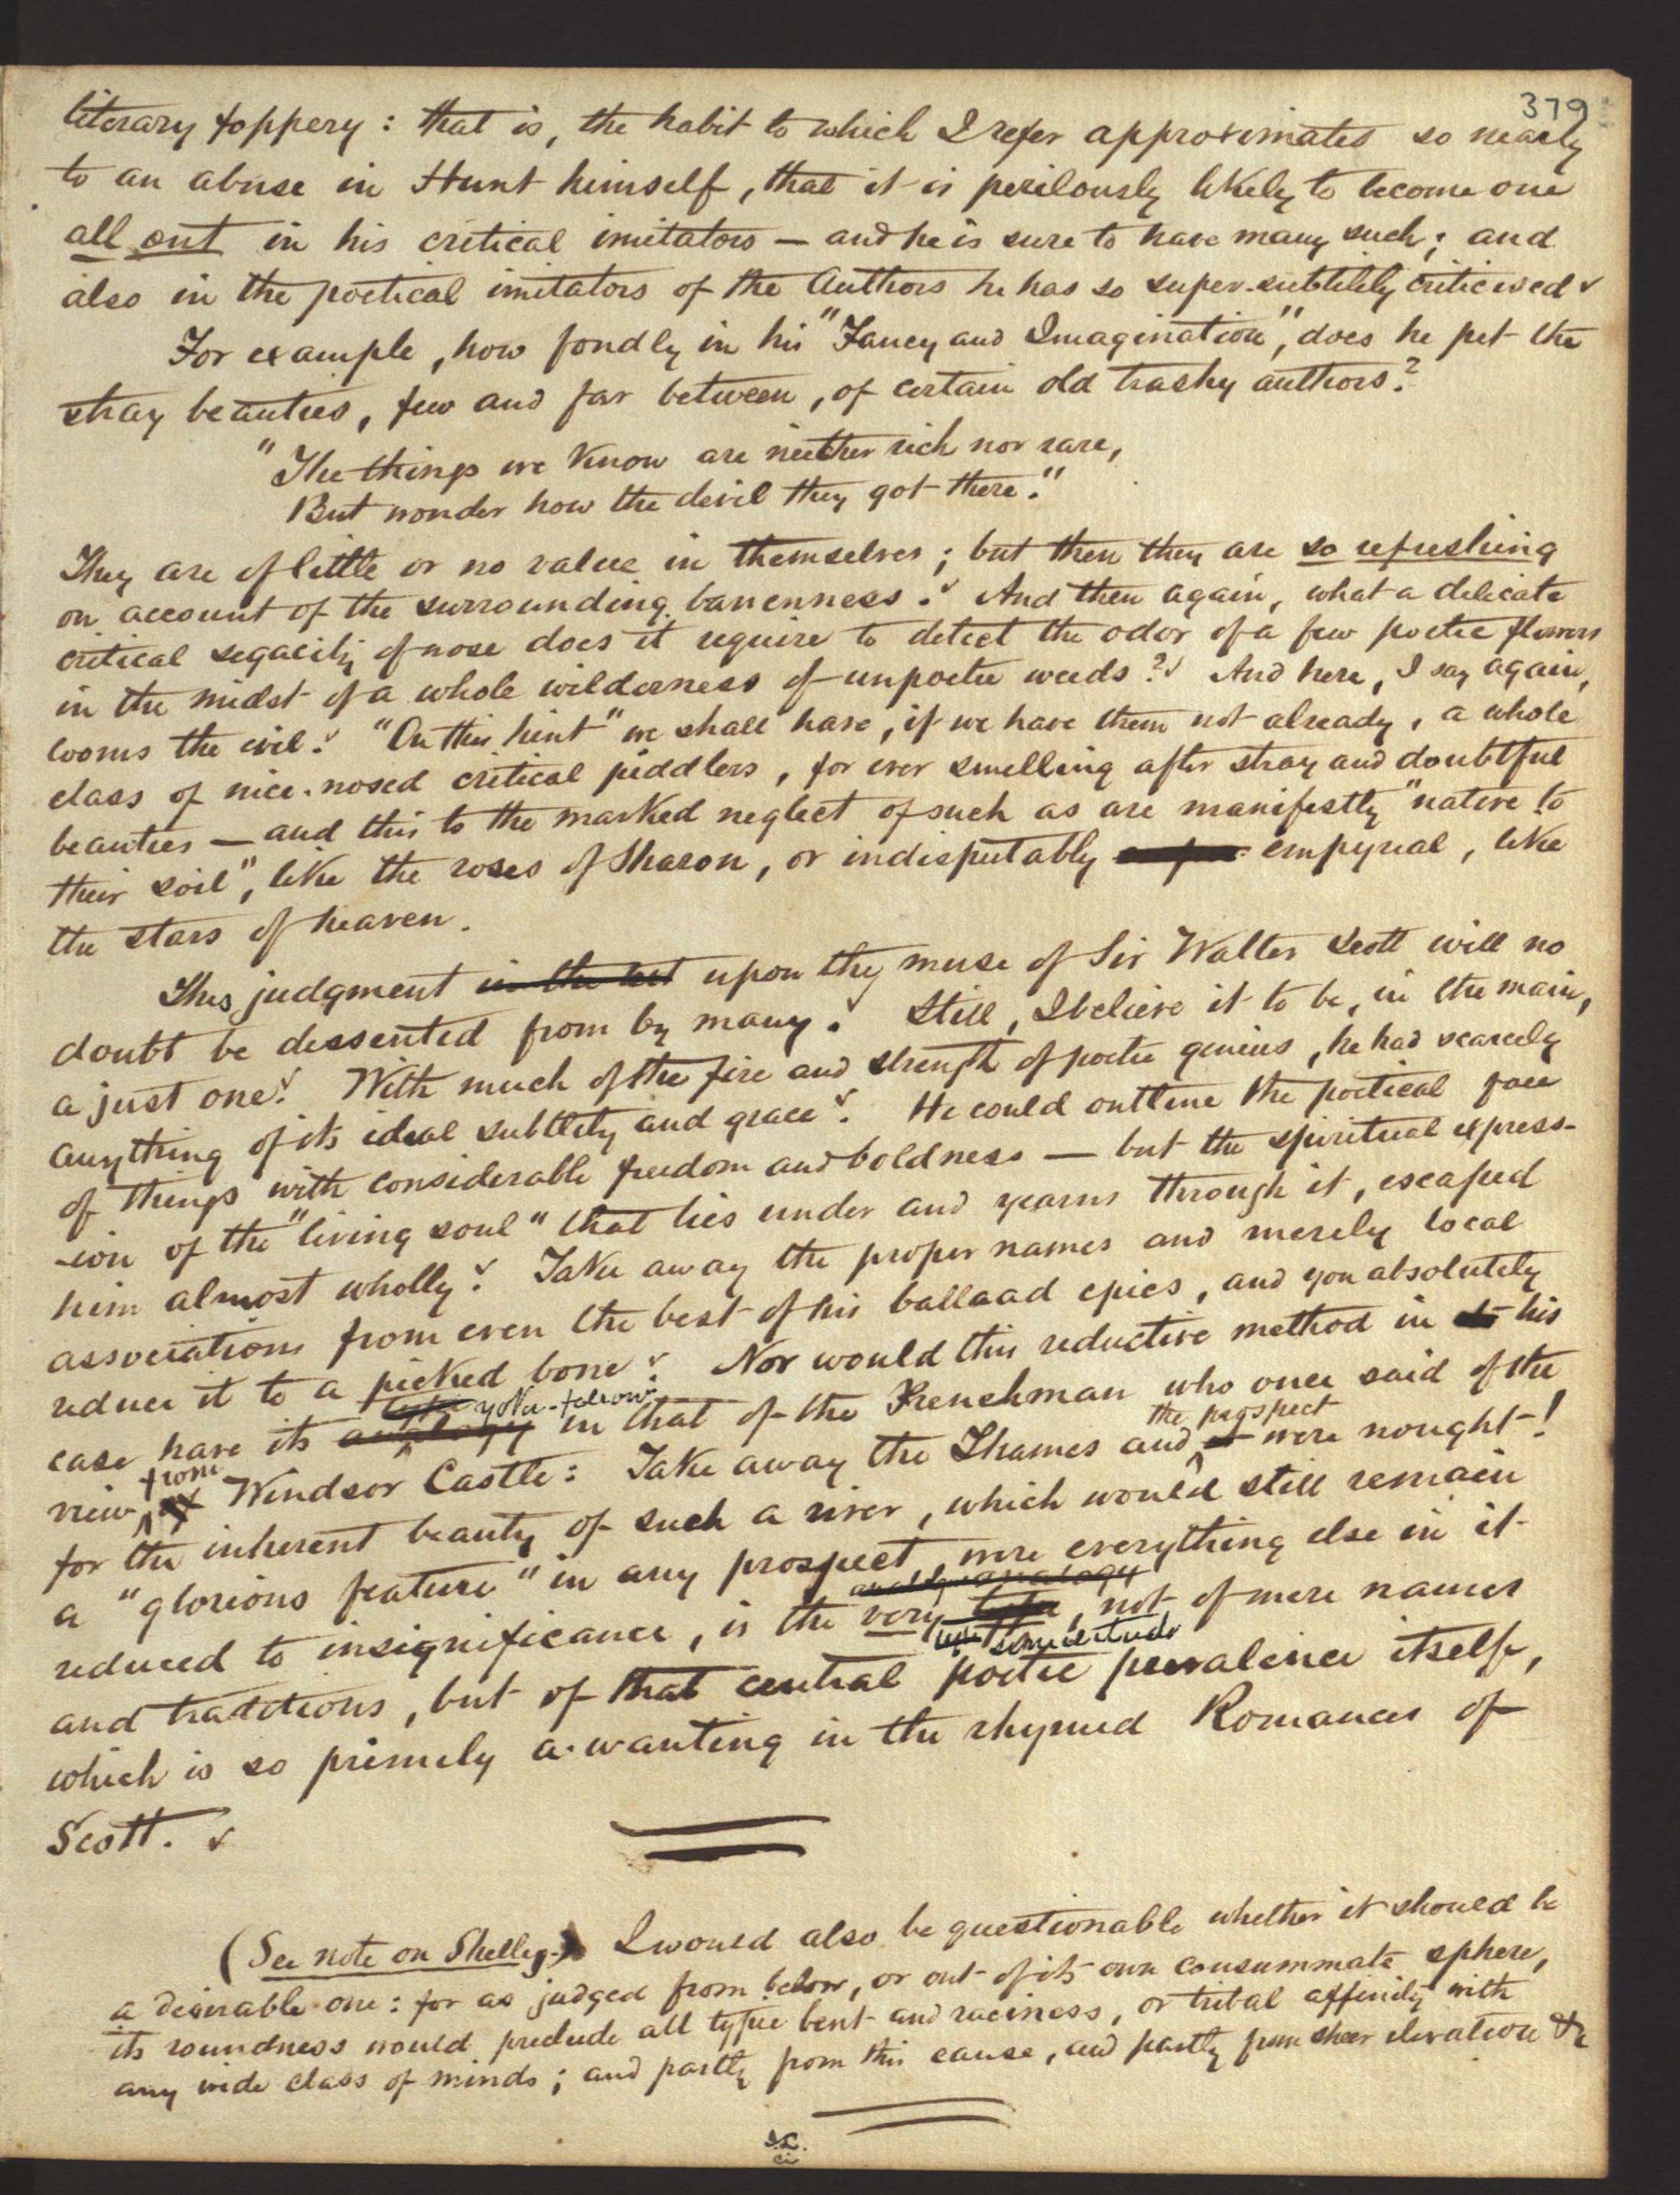 379
literary foppery: that is, the habit to which I refer approximates so nearly
to an abuse in Hunt himself, that it is perilously likely to become one
all out in his critical imitators — and he is sure to have many such; and
also in the poetical imitators of the Authors he has so super-subtilily criticised
For example, how fondly in his "Fancy and Imagination", does he pet the
stray beauties, few and far between, of certain old trashy authors?
"The things we know are neither rich nor rare,
But wonder how the devil they got there."
They are of little or no value in themselves; but then they are so refreshing
on account of the surrounding barrenness. And then again, what a delicate
critical segacity of nose does it require to detect the odor of a few poetic flowers
in the midst of a whole wilderness of unpoetic weeds? And here, I say again,
looms the evil. "On this hint" we shall have, if we have them not already, a whole
class of nice-nosed critical piddlers, for ever smelling after stray and doubtful
beauties — and this to the marked neglect of such as are manifestly "native to
their soil", like the roses of Sharon, or indisputably empyreal, like
the stars of heaven.
This judgment in the text upon the muse of Sir Walter Scott will no
doubt be dessented from by many. Still, I believe it to be, in the main,
a just one. With much of the fire and strength of poetic genius, he had scarcely
anything of its ideal subtlety and grace. He could outline the poetical face
of things with considerable freedom and boldness — but the spiritual express-
-ion of the "living soul" that lies under and yearns through it, escaped
him almost wholly. Take away the proper names and merely local
associations from even the best of his ballaad epics, and you absolutely
reduce it to a picked bone. Nor would this reductive method in his
case have its analogy yoke-fellow in that of the Frenchman who once said of the
view from of Windsor Castle: Take away the Thames and the prospect it were nought!
for the inherent beauty of such a river, which would still remain
a "glorious feature" in any prospect, were everything else in it
analogy
reduced to insignificance, is the very type, not of mere names
similitude
and traditions, but of that central poetic prevalence itself,
which is so primely a-wanting in the rhymed Romances of
Scott.
(See note on Shelley.) I would also be questionable whether it should be
a desirable one: for as judged from below, or out of its own consummate sphere,
its roundness would preclude all typic bent and raciness, or tribal affinity with
any wide class of minds; and partly from this cause, and partly from sheer elevation &c